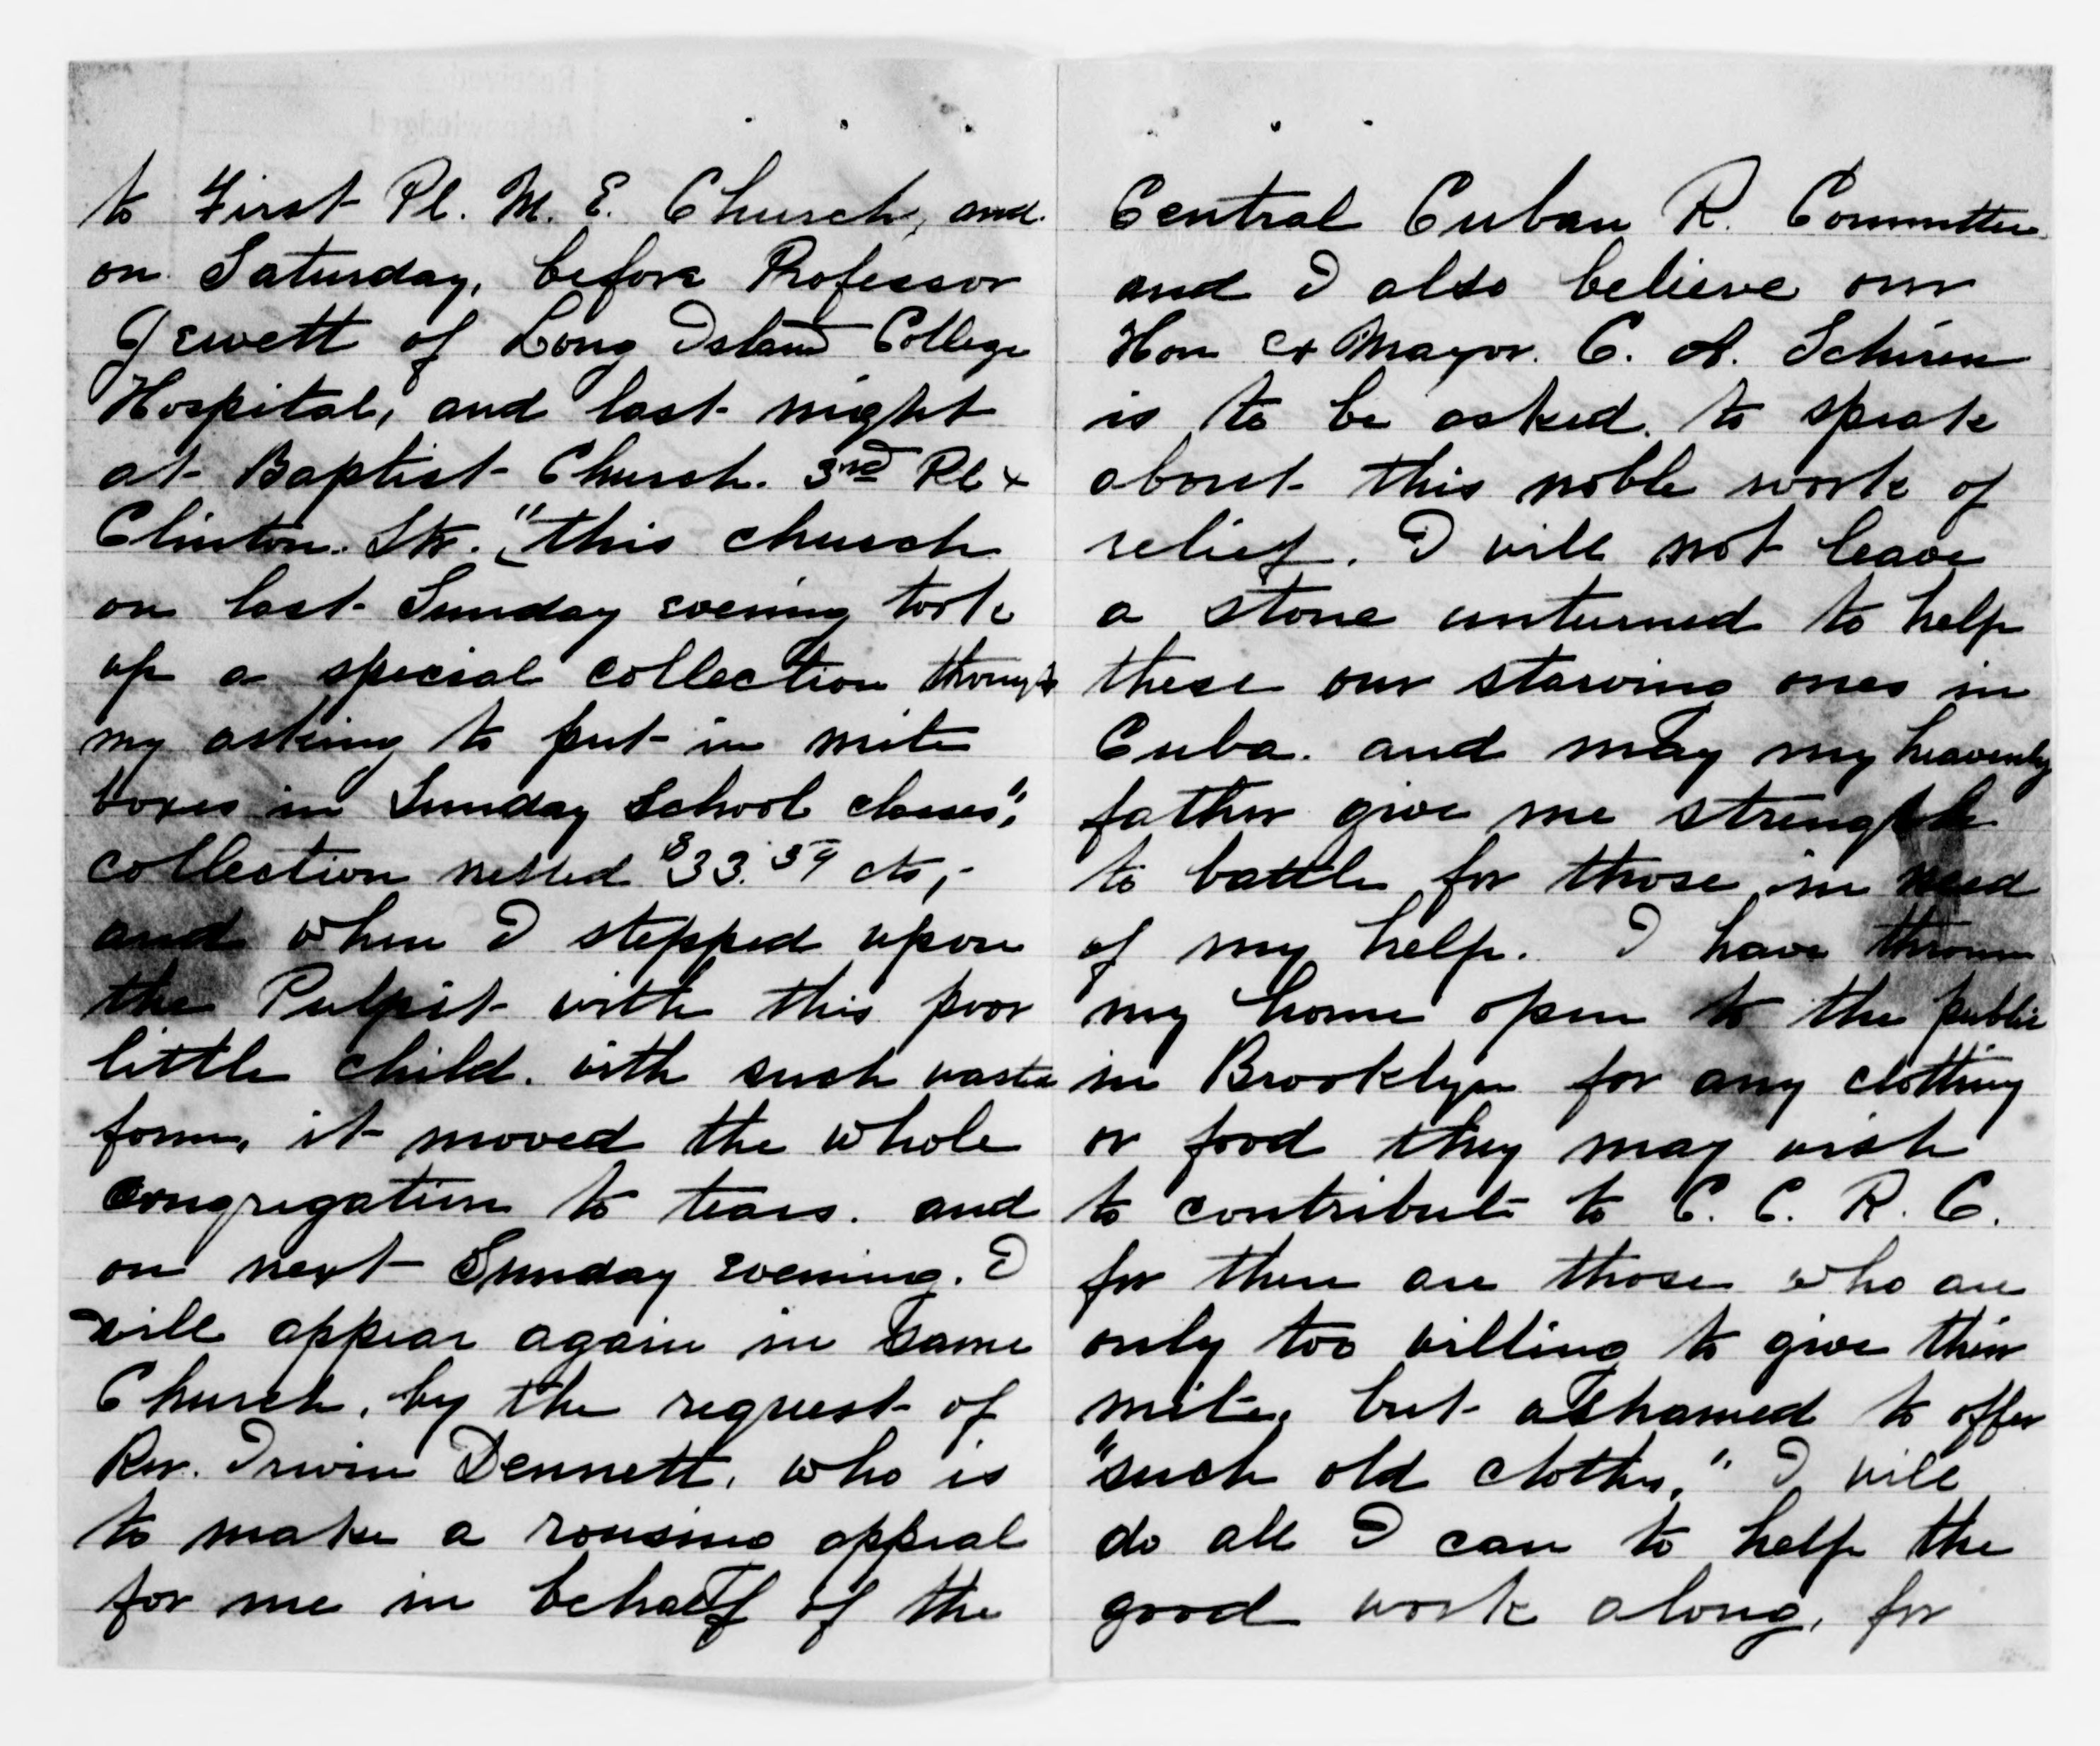 to First Pl. M. E. Church, and
on Saturday, before Professor
Jewett of Long Island College
Hospital, and last night
at Baptist Church. 3rd Pl +
Clinton. Str. "this church
on last Sunday evening took
up a special collection through
my asking to put in mite
boxes in Sunday School classes";
collection netted $33.59 cts,-
and when I stepped upon
the Pulpit with this poor
little child. with such wasted
form, it moved the whole
congregation to tears. and
on next Sunday evening. I
will appear again in same
Church, by the request of
Rev. Irwin Dennett, who is
to make a rousing appeal
for me in behalf of the
Central Cuban R. Committee
and I also believe our
Hon ex Mayor. C. A. Schiren
is to be asked to speak
about this noble work of
relief. I will not leave
a stone unturned to help
these our starving ones in
Cuba. and may my heavenly
father give me strength
to battle for those in need
of my help. I have thrown
my home open to the public
in Brooklyn for any clothing
or food they may wish
to contribute to C. C. R. C.
for there are those who are
only too willing to give their
mite, but ashamed to offer
"such old clothes," I will
do all I can to help the
good work along, for